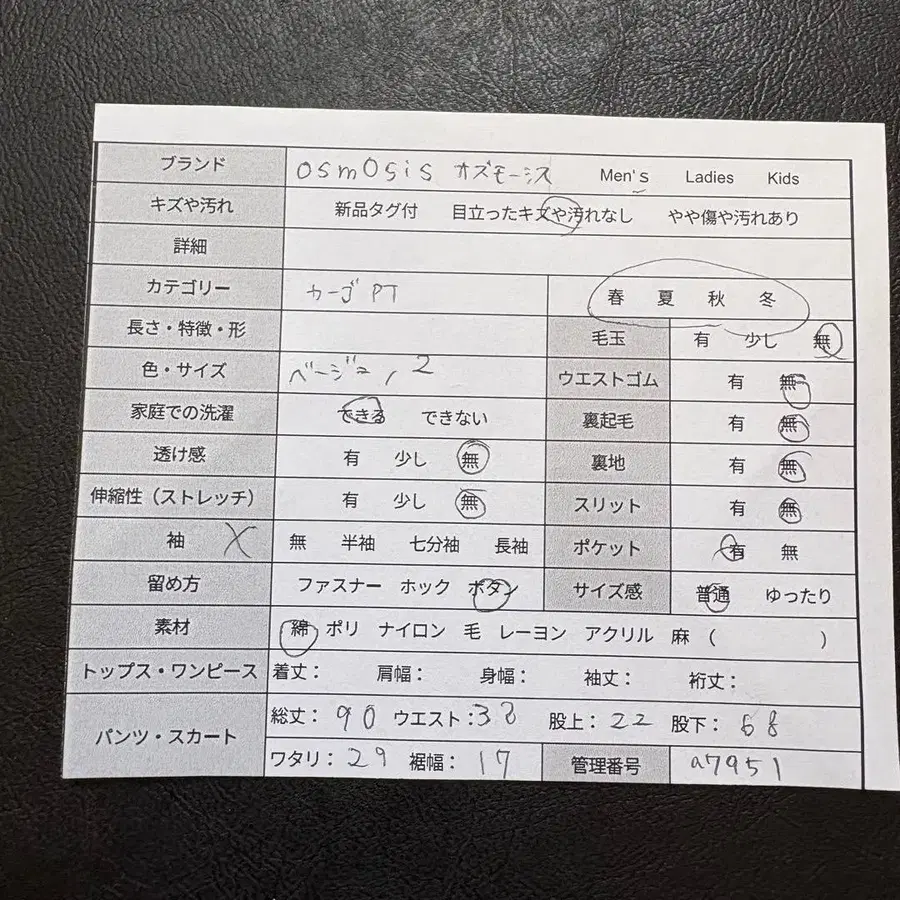 ブランド osmosis オズモーシス Men's Ladies Kids
キズや汚れ 新品タグ付 目立ったキズや汚れなし やや傷や汚れあり
詳細
カテゴリー カーゴPT 春 夏 秋 冬
長さ・特徴・形 毛玉 有 少し 無
色・サイズ ベージュ, 2 ウエストゴム 有 無
家庭での洗濯 できる できない 裏起毛 有 無
透け感 有 少し 無 裏地 有 無
伸縮性（ストレッチ） 有 少し 無 スリット 有 無
袖 無 半袖 七分袖 長袖 ポケット 有 無
留め方 ファスナー ホック ボタン サイズ感 普通 ゆったり
素材 綿 ポリ ナイロン 毛 レーヨン アクリル 麻 ( )
トップス・ワンピース 着丈： 肩幅： 身幅： 袖丈： 裄丈：
パンツ・スカート 総丈：90 ウエスト：38 股上：22 股下：68
ワタリ：29 裾幅：17 管理番号 a7951